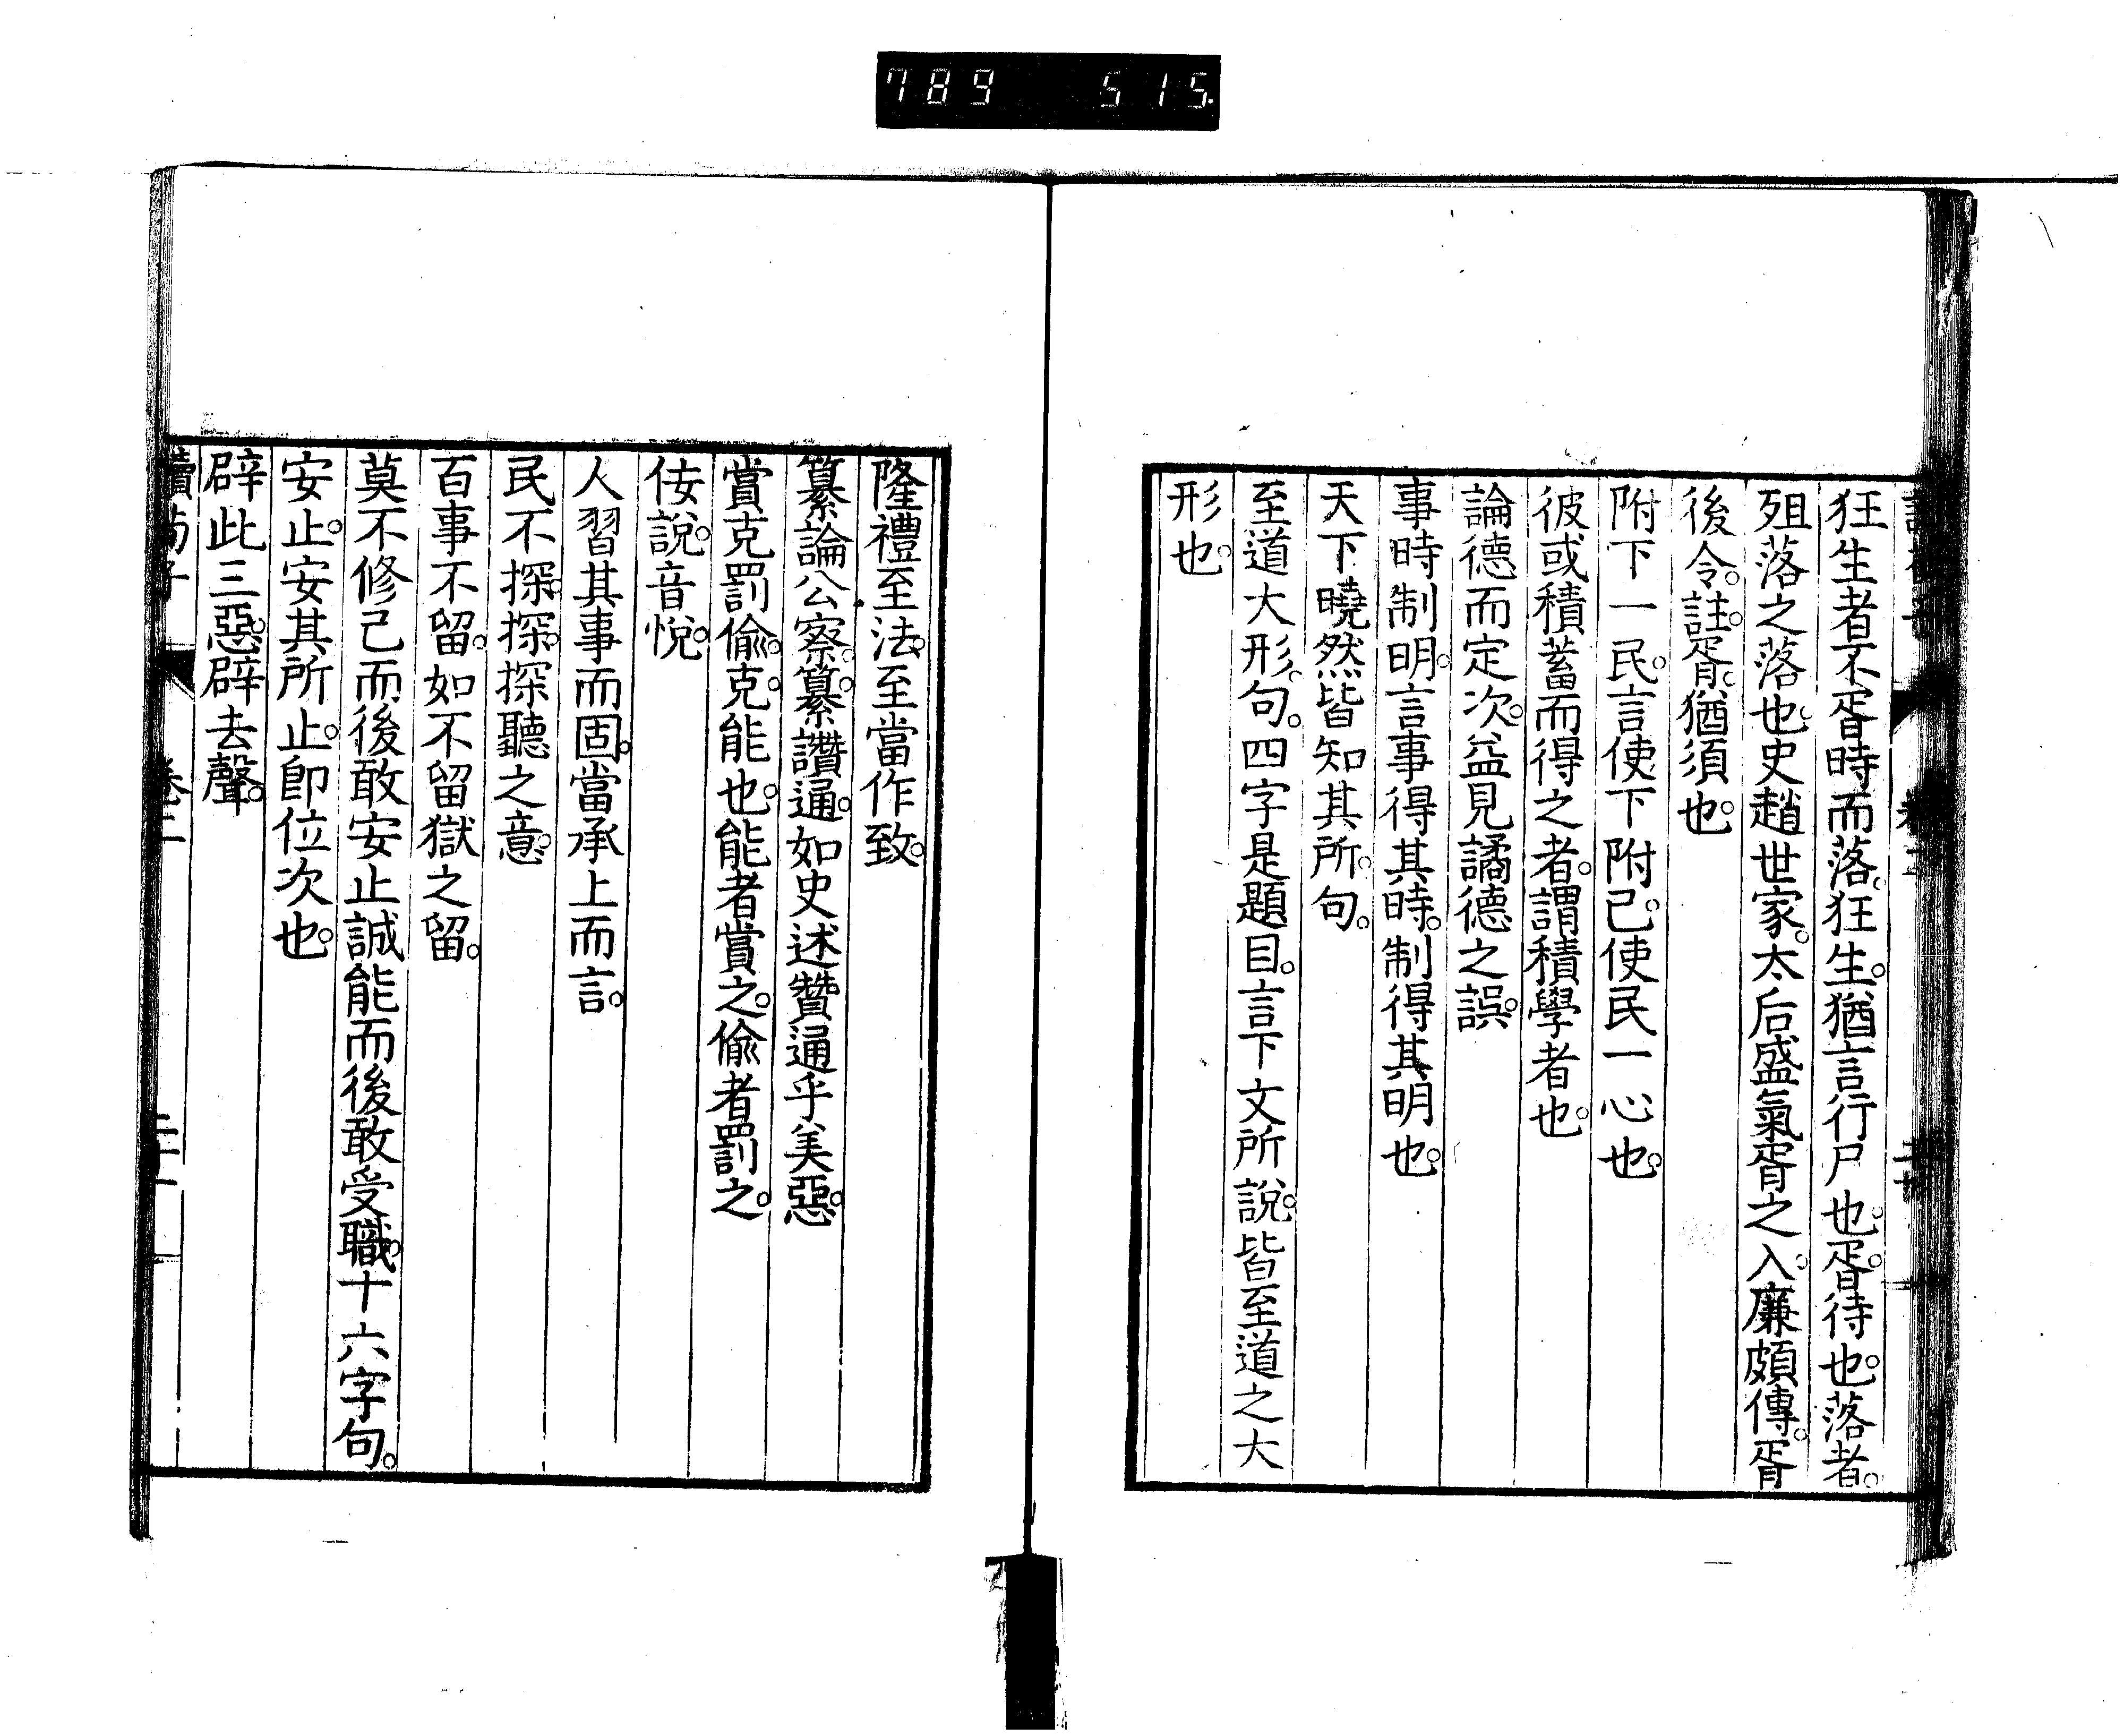 789 515
狂生者不胥時而落。狂生。猶言行尸也。胥。待也。落者。
殂落之落也。史趙世家。太后盛氣胥之。入廉頗傳。胥
後令。註。胥。猶須也。
附下一民。言使下附己。使民一心也。
彼或積蓄而得之者。謂積學者也。
論德而定次。益見譎德之誤。
事時制明。言事得其時。制得其明也。
天下曉然皆知其所。句。
至道大形。句。四字是題目。言下文所說。皆至道之大
形也。
隆禮至法。至當作致。
纂論公察。纂。纂讚通。如史述贊通乎美惡。
賞克罰偸。克。能也。能者賞之。偸者罰之。
佞說。音悅。
人習其事而固。當承上而言。
民不探。探。探聽之意。
百事不留。如不留獄之留。
莫不修己而後敢安止誠能而後敢受職。十六字句。
安止。安其所止。卽位次也。
辟此三惡。辟去聲。
讀荀子 卷二